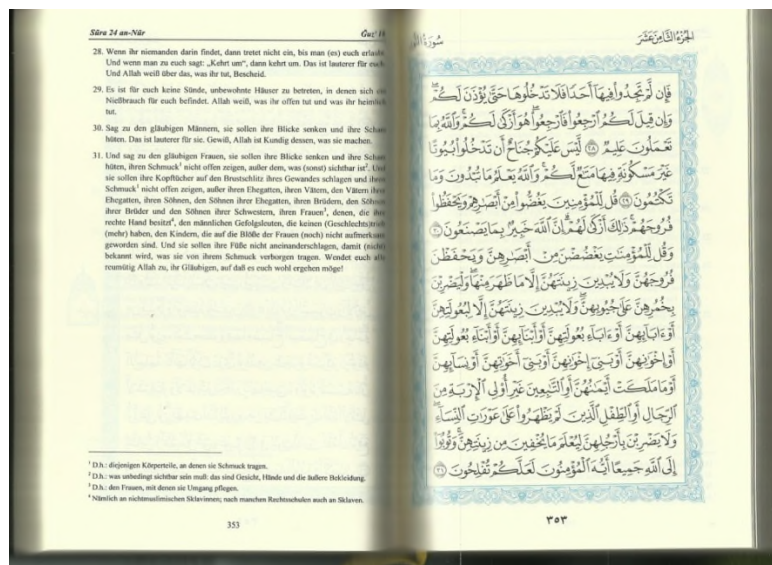 Sūra 24 an-Nūr Ǧuz' 18
28. Wenn ihr niemanden darin findet, dann tretet nicht ein, bis man (es) euch erlaubt.
Und wenn man zu euch sagt: „Kehrt um“, dann kehrt um. Das ist lauterer für euch.
Und Allah weiß über das, was ihr tut, Bescheid.
29. Es ist für euch keine Sünde, unbewohnte Häuser zu betreten, in denen sich ein
Nießbrauch für euch befindet. Allah weiß, was ihr offen tut und was ihr heimlich
tut.
30. Sag zu den gläubigen Männern, sie sollen ihre Blicke senken und ihre Scham
hüten. Das ist lauterer für sie. Gewiß, Allah ist Kundig dessen, was sie machen.
31. Und sag zu den gläubigen Frauen, sie sollen ihre Blicke senken und ihre Scham
hüten, ihren Schmuck¹ nicht offen zeigen, außer dem, was (sonst) sichtbar ist². Und
sie sollen ihre Kopftücher auf den Brustschlitz ihres Gewandes schlagen und ihren
Schmuck¹ nicht offen zeigen, außer ihren Ehegatten, ihren Vätern, den Vätern ihrer
Ehegatten, ihren Söhnen, den Söhnen ihrer Ehegatten, ihren Brüdern, den Söhnen
ihrer Brüder und den Söhnen ihrer Schwestern, ihren Frauen³, denen, die ihre
rechte Hand besitzt⁴, den männlichen Gefolgsleuten, die keinen (Geschlechts)trieb
(mehr) haben, den Kindern, die auf die Blöße der Frauen (noch) nicht aufmerksam
geworden sind. Und sie sollen ihre Füße nicht aneinanderschlagen, damit (nicht)
bekannt wird, was sie von ihrem Schmuck verborgen tragen. Wendet euch alle
reumütig Allah zu, ihr Gläubigen, auf daß es euch wohl ergehen möge!
¹ D.h.: diejenigen Körperteile, an denen sie Schmuck tragen.
² D.h.: was unbedingt sichtbar sein muß: das sind Gesicht, Hände und die äußere Bekleidung.
³ D.h.: den Frauen, mit denen sie Umgang pflegen.
⁴ Nämlich an nichtmuslimischen Sklavinnen; nach manchen Rechtsschulen auch an Sklaven.
353
الجزء الثامن عشر سورة
فَإِن لَّمْ تَجِدُوا فِيهَا أَحَدًا فَلَا تَدْخُلُوهَا حَتَّىٰ يُؤْذَنَ لَكُمْ
وَإِن قِيلَ لَكُمُ ارْجِعُوا فَارْجِعُوا هُوَ أَزْكَىٰ لَكُمْ وَاللَّهُ بِمَا
تَعْمَلُونَ عَلِيمٌ ٢٨ لَّيْسَ عَلَيْكُمْ جُنَاحٌ أَن تَدْخُلُوا بُيُوتًا
غَيْرَ مَسْكُونَةٍ فِيهَا مَتَاعٌ لَّكُمْ وَاللَّهُ يَعْلَمُ مَا تُبْدُونَ وَمَا
تَكْتُمُونَ ٢٩ قُل لِّلْمُؤْمِنِينَ يَغُضُّوا مِنْ أَبْصَارِهِمْ وَيَحْفَظُوا
فُرُوجَهُمْ ذَٰلِكَ أَزْكَىٰ لَهُمْ إِنَّ اللَّهَ خَبِيرٌ بِمَا يَصْنَعُونَ ٣٠
وَقُل لِّلْمُؤْمِنَاتِ يَغْضُضْنَ مِنْ أَبْصَارِهِنَّ وَيَحْفَظْنَ
فُرُوجَهُنَّ وَلَا يُبْدِينَ زِينَتَهُنَّ إِلَّا مَا ظَهَرَ مِنْهَا وَلْيَضْرِبْنَ
بِخُمُرِهِنَّ عَلَىٰ جُيُوبِهِنَّ وَلَا يُبْدِينَ زِينَتَهُنَّ إِلَّا لِبُعُولَتِهِنَّ
أَوْ آبَائِهِنَّ أَوْ آبَاءِ بُعُولَتِهِنَّ أَوْ أَبْنَائِهِنَّ أَوْ أَبْنَاءِ بُعُولَتِهِنَّ
أَوْ إِخْوَانِهِنَّ أَوْ بَنِي إِخْوَانِهِنَّ أَوْ بَنِي أَخَوَاتِهِنَّ أَوْ نِسَائِهِنَّ
أَوْ مَا مَلَكَتْ أَيْمَانُهُنَّ أَوِ التَّابِعِينَ غَيْرِ أُولِي الْإِرْبَةِ مِنَ
الرِّجَالِ أَوِ الطِّفْلِ الَّذِينَ لَمْ يَظْهَرُوا عَلَىٰ عَوْرَاتِ النِّسَاءِ
وَلَا يَضْرِبْنَ بِأَرْجُلِهِنَّ لِيُعْلَمَ مَا يُخْفِينَ مِن زِينَتِهِنَّ وَتُوبُوا
إِلَى اللَّهِ جَمِيعًا أَيُّهَ الْمُؤْمِنُونَ لَعَلَّكُمْ تُفْلِحُونَ ٣١
٣٥٣